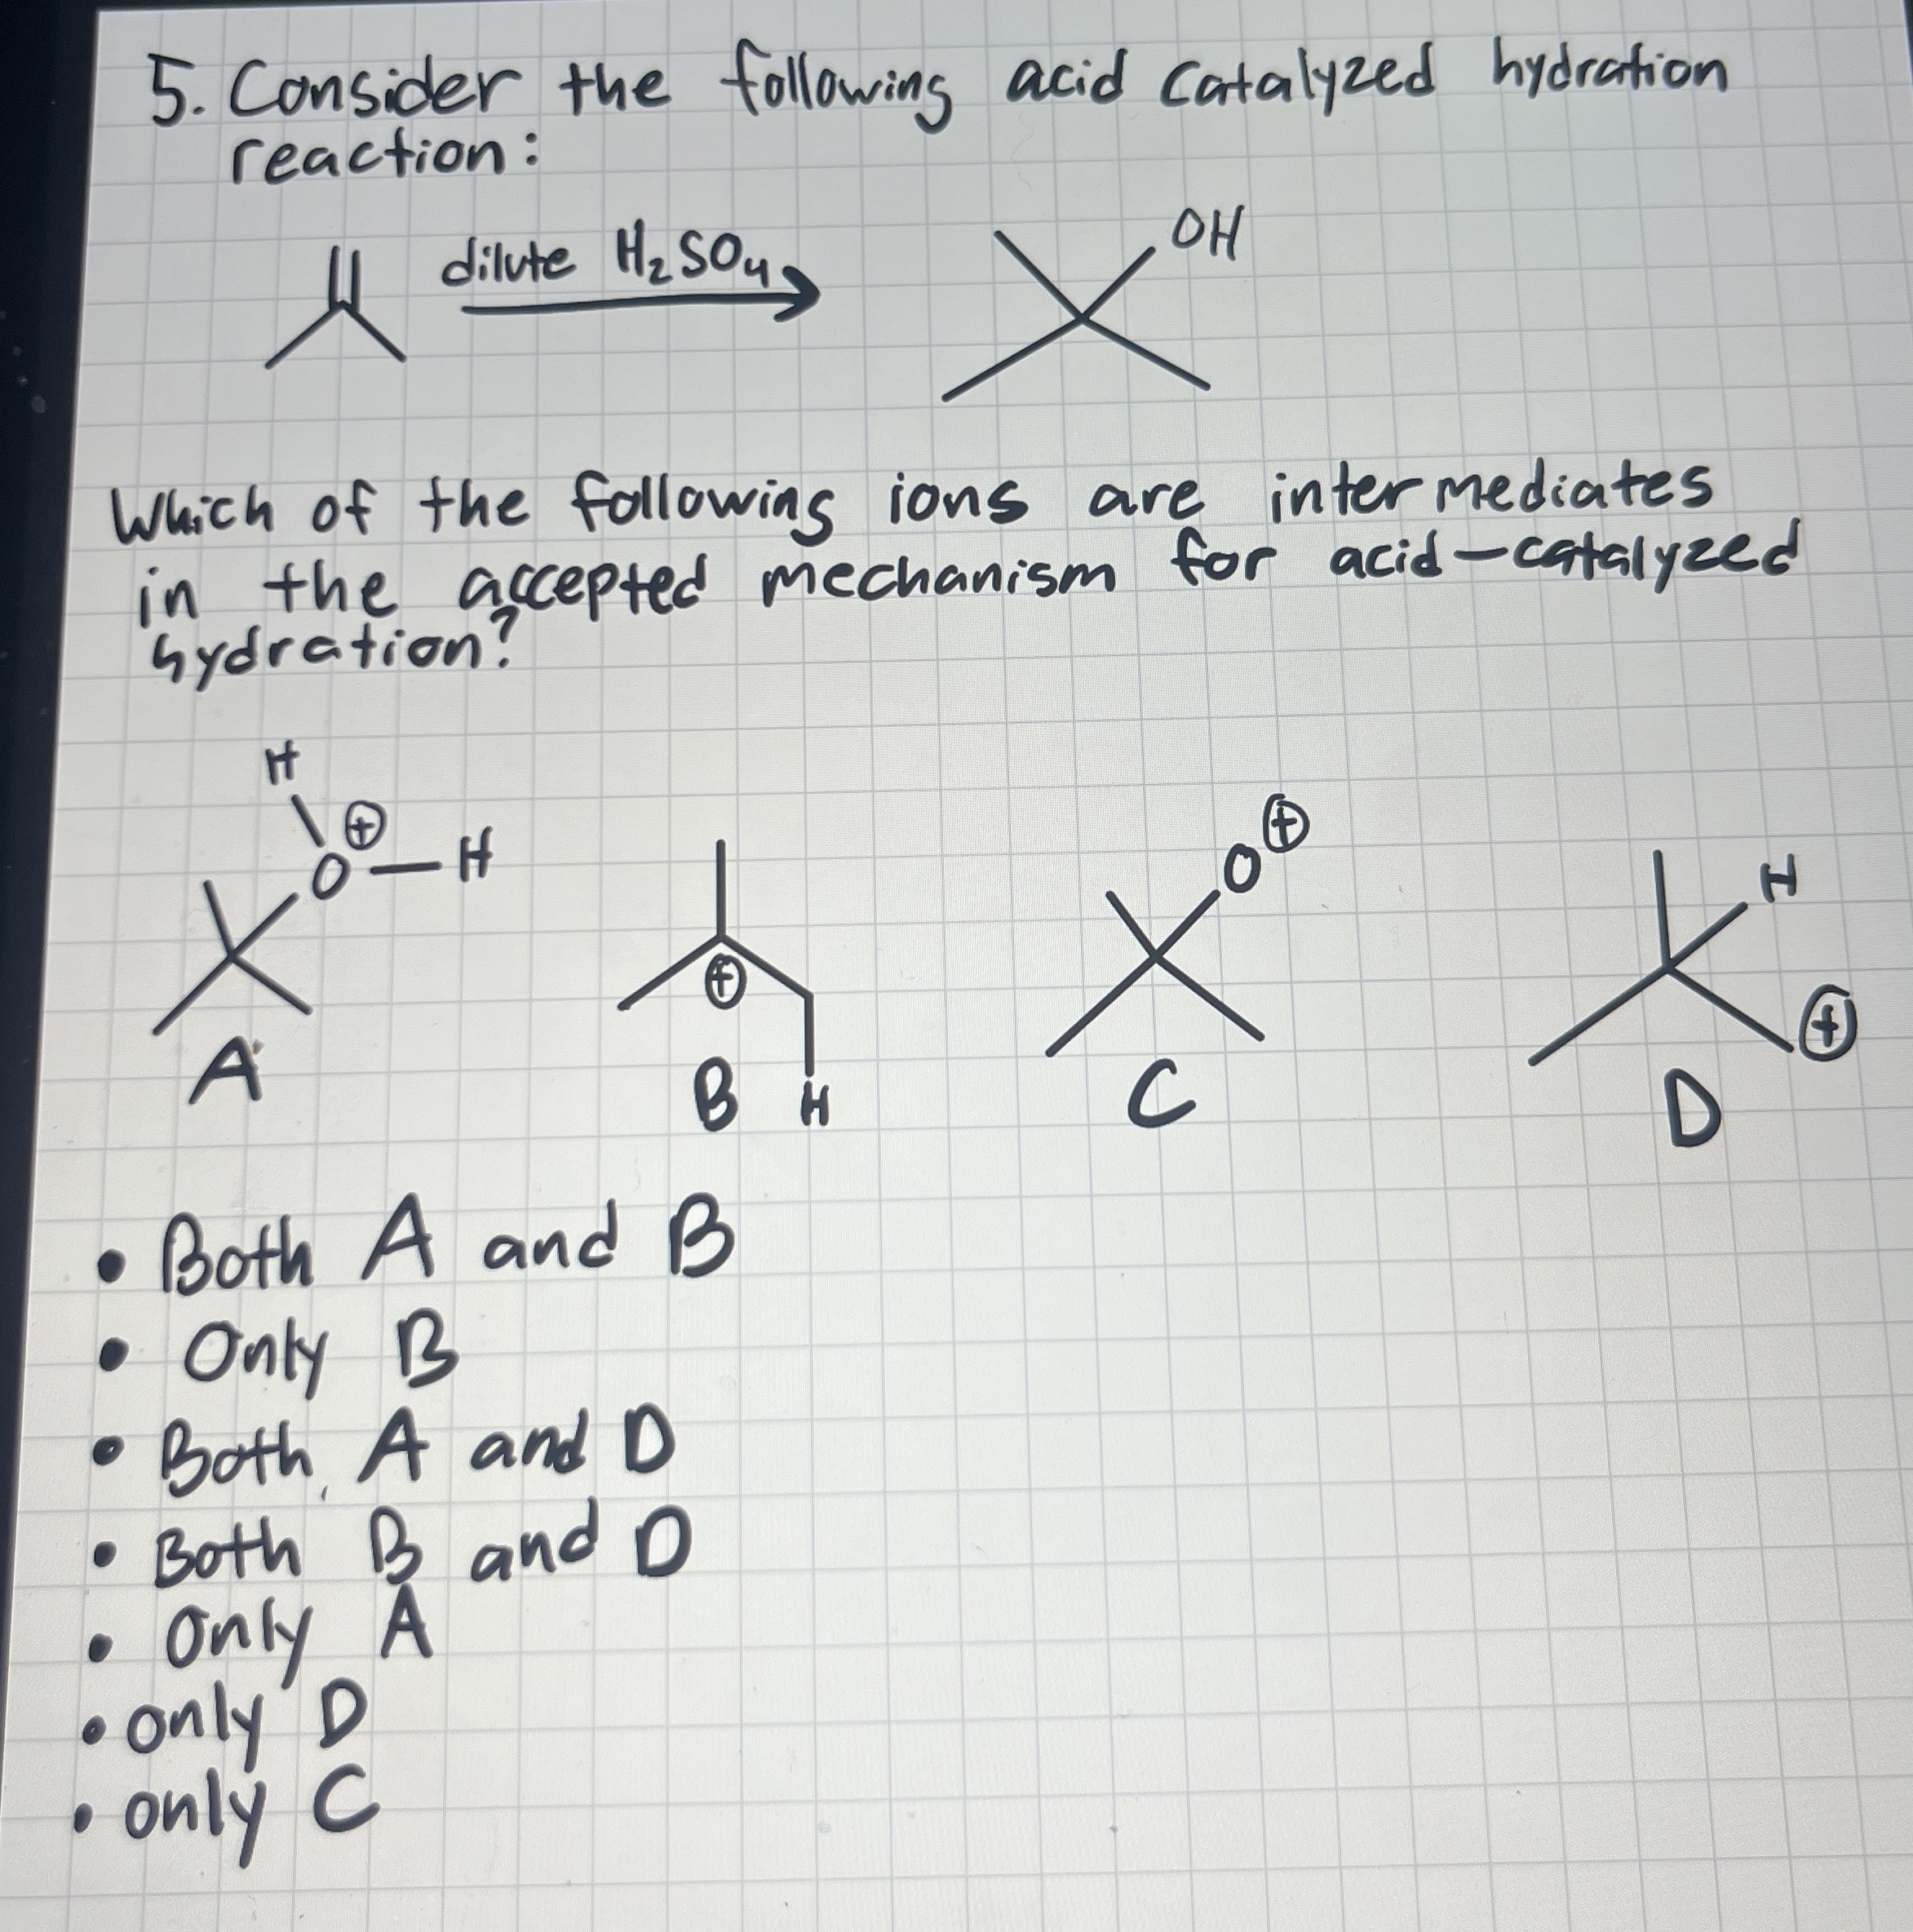 5. Consider the following acid catalyzed hydration
reaction:
dilute H₂SO₄
OH
Which of the following ions are intermediates
in the accepted mechanism for acid-catalyzed
hydration?
H
⊕
O-H
A
⊕
B H
O⊕
C
H
⊕
D
• Both A and B
• Only B
• Both A and D
• Both B and D
• Only A
• only D
• only C